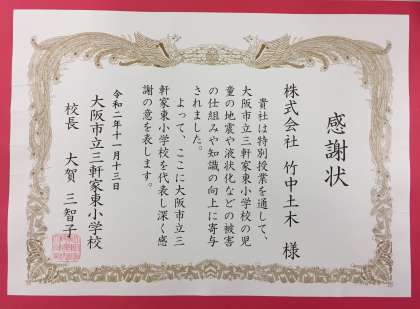 感謝状
株式会社 竹中土木 様
貴社は特別授業を通して、
大阪市立三軒家東小学校の児
童の地震や液状化などの被害
の仕組みや知識の向上に寄与
されました。
よって、ここに大阪市立三
軒家東小学校を代表し深く感
謝の意を表します。
令和二年十一月十三日
大阪市立三軒家東小学校
校長 大賀 三智子